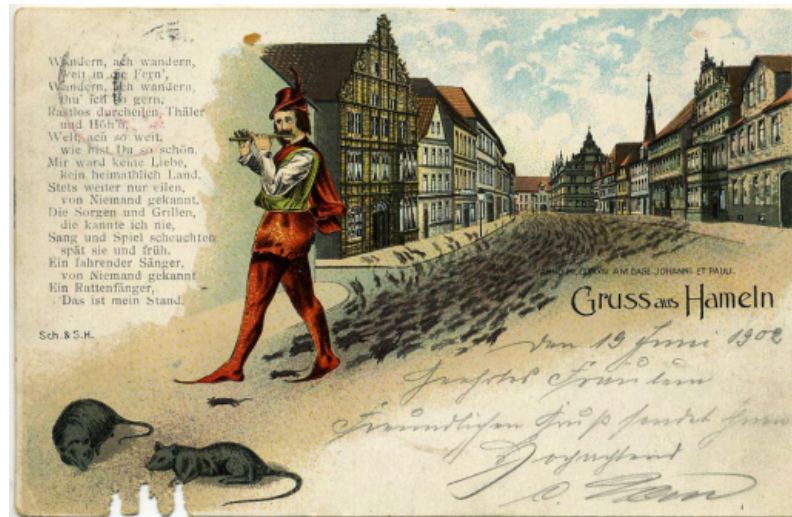 Wandern, ach wandern,
Weit in die Fern',
Wandern, ach wandern,
thu' ich so gern.
Rastlos durcheilen Thäler
und Höh'n,
Welt, ach so weit,
wie bist Du so schön.
Mir ward keine Liebe,
kein heimathlich Land.
Stets weiter nur eilen,
von Niemand gekannt.
Die Sorgen und Grillen,
die kannte ich nie,
Sang und Spiel scheuchten
spät sie und früh.
Ein fahrender Sänger,
von Niemand gekannt
Ein Rattenfänger,
Das ist mein Stand.
Sch. & S. H.
ANNO AM DAGE JOHANNI ET PAULI.
Gruss aus Hameln
den 19 Juni 1902
Geehrtes Fräulein
Freundlichen Gruß sendet Ihnen
Hochachtend